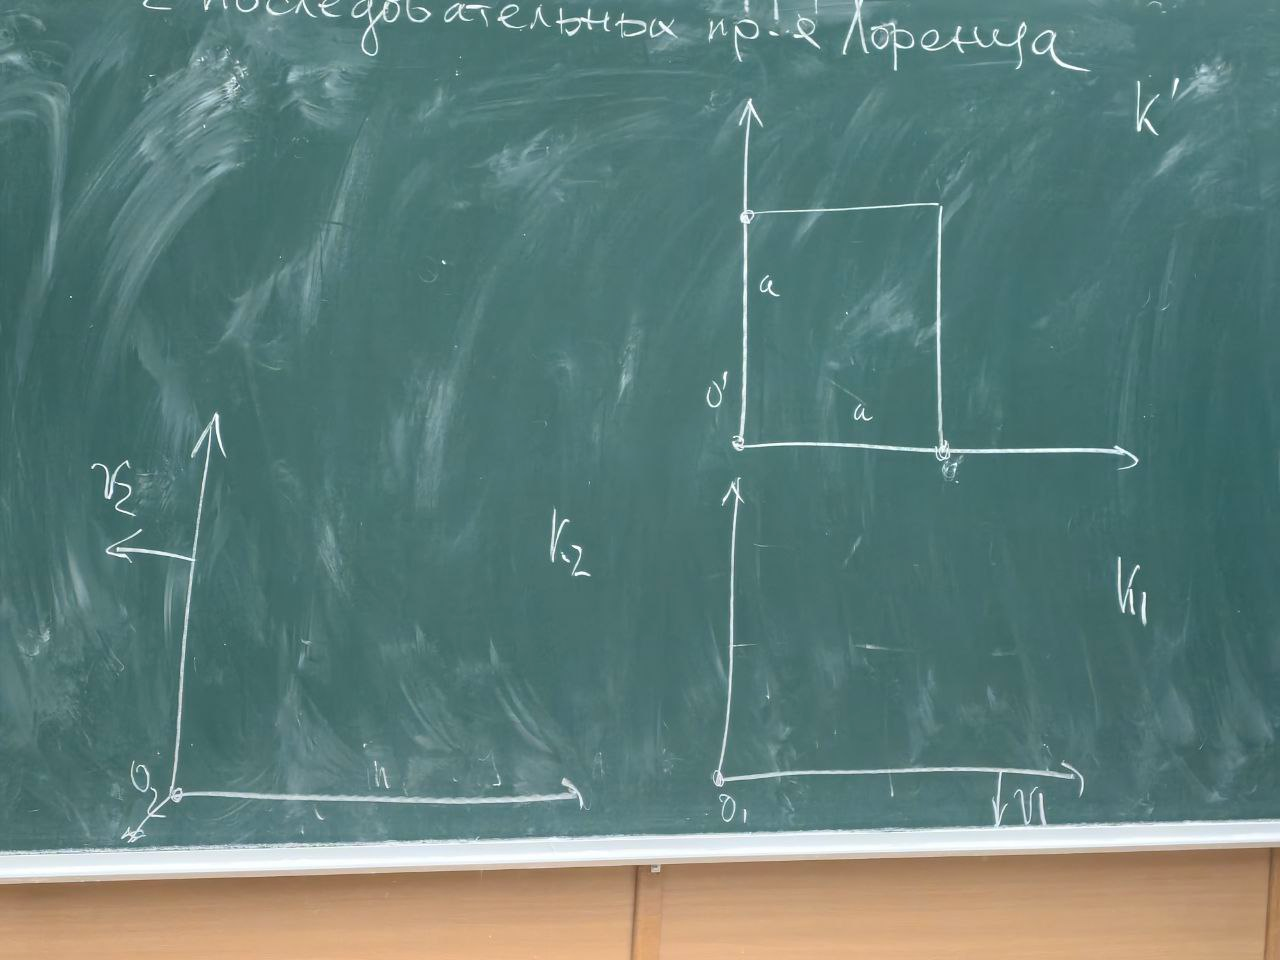 2 последовательных пр-я Лоренца
K'
a
O'
a
V2
K2
K1
O2
O1
V1